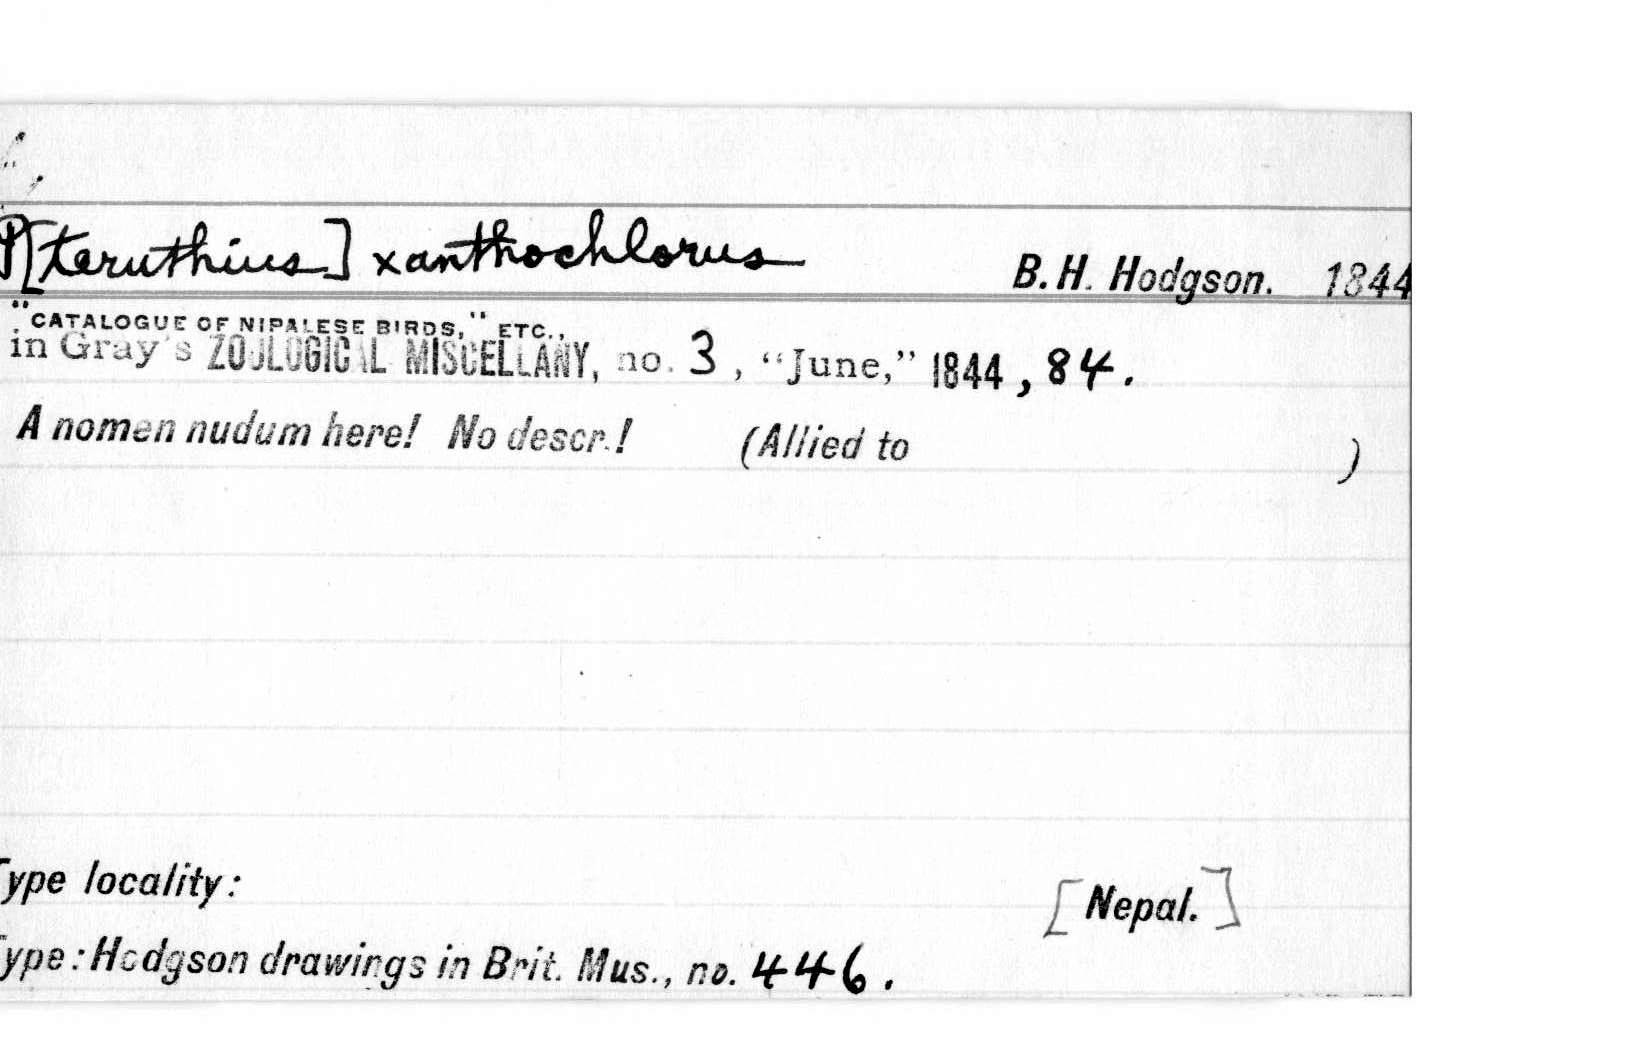 P[teruthius] xanthochlorus B. H. Hodgson. 1844
"CATALOGUE OF NIPALESE BIRDS," ETC.,
in Gray's ZOOLOGICAL MISCELLANY, no. 3, “June,” 1844, 84.
A nomen nudum here! No descr.! (Allied to )
Type locality: [Nepal.]
Type: Hodgson drawings in Brit. Mus., no. 446.